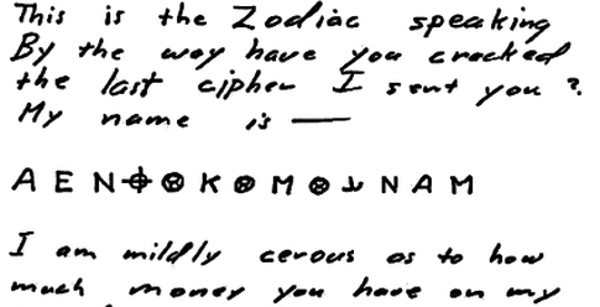 This is the Zodiac speaking
By the way have you cracked
the last cipher I sent you ?
My name is —
A E N ⌖ ⊗ K ⊗ M ⊗ N A M
I am mildly cerous as to how
much money you have on my